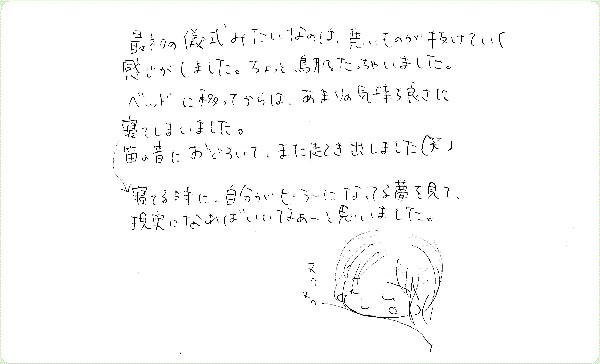 最初の儀式みたいなのは、悪いものが抜けていく
感じがしました。ちょっと鳥肌たっちゃいました。
ベッドに移ってからは、あまりの気持ち良さに
寝てしまいました。
笛の音におどろいて、また起き出しました(笑)
寝てる時に、自分がヒーラーになってる夢を見て、
現実になればいいなあーと思いました。